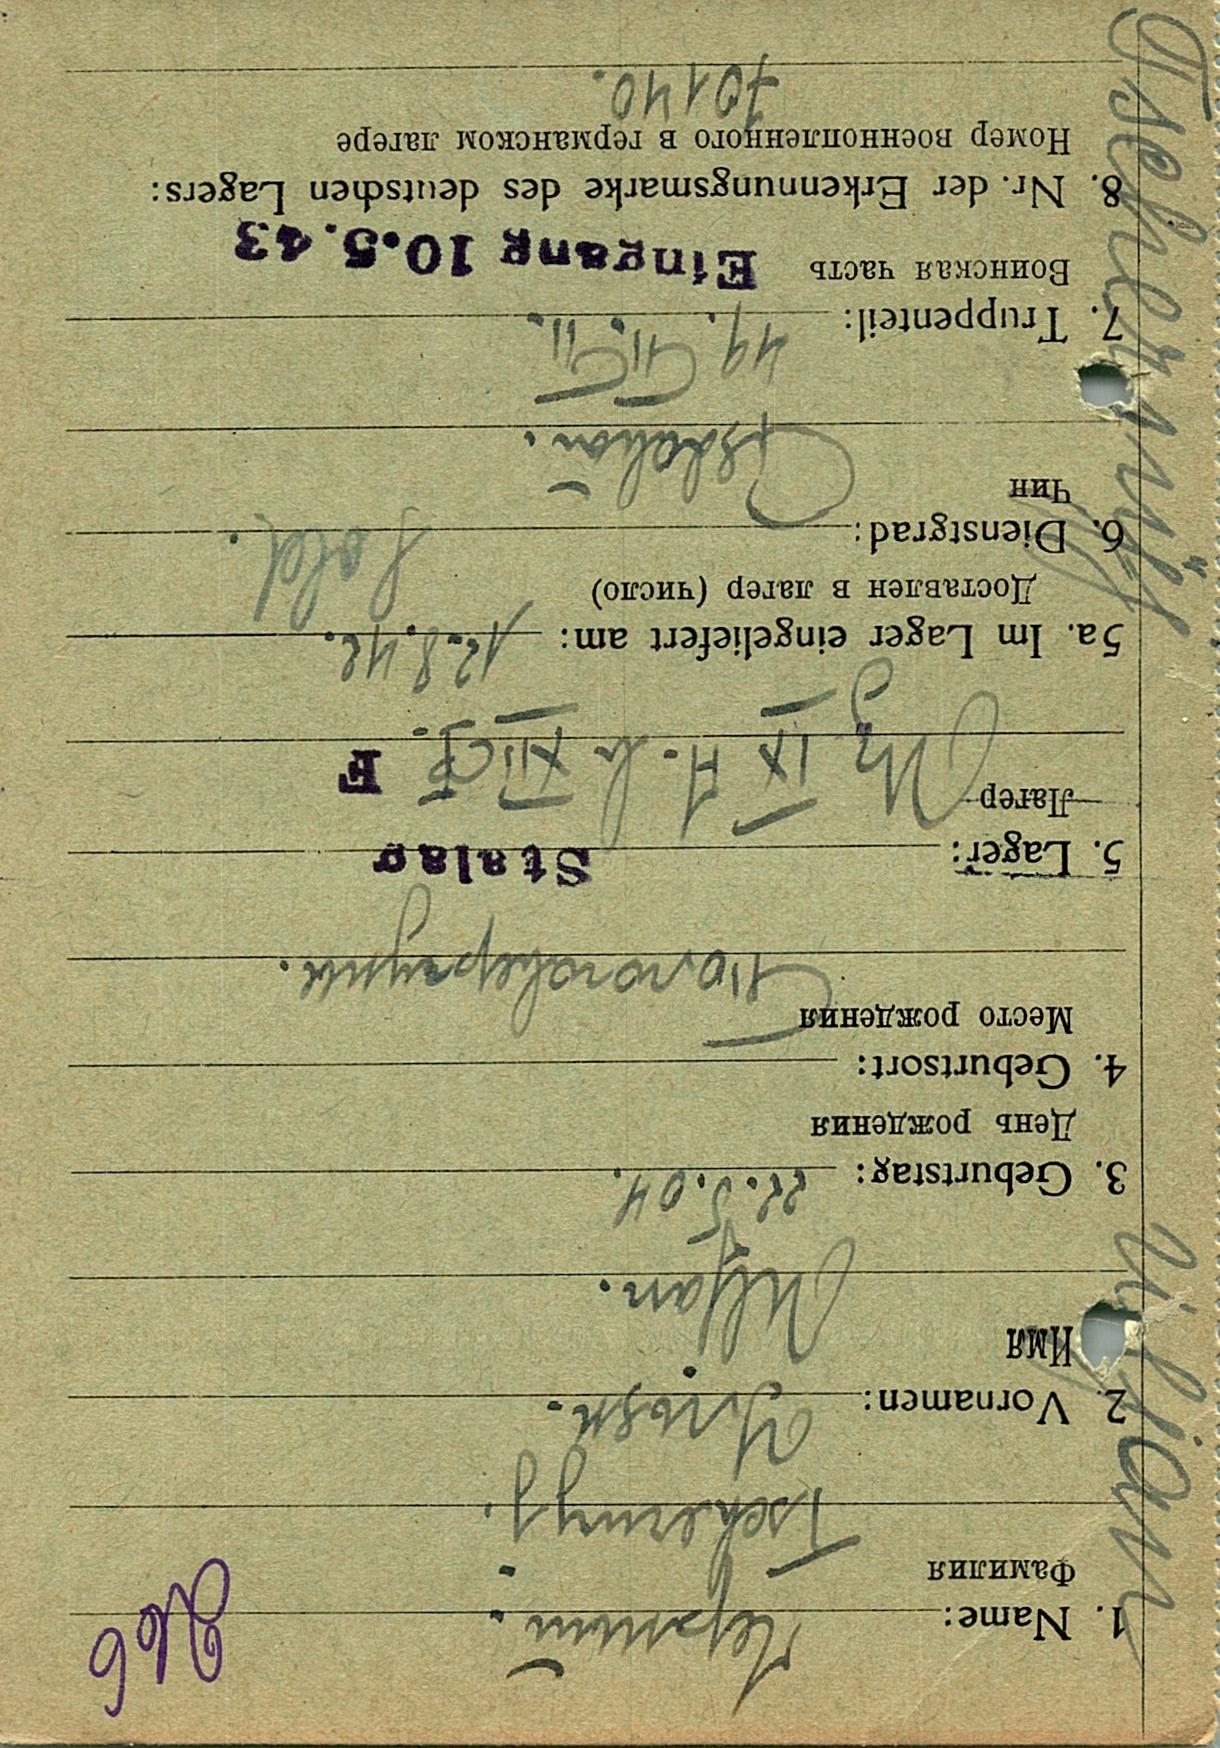 1. Name: Черный.
Фамилия
Tschernyj.
2. Vornamen: Улян.
Имя
Uljan.
3. Geburtstag: 22.5.04.
День рождения
4. Geburtsort:
Место рождения
5. Lager: Stalag
Лагер
IX A. XII F. F
5a. Im Lager eingeliefert am: 12.8.42.
Доставлен в лагер (число)
6. Dienstgrad: Sold.
Чин
7. Truppenteil: 49.
Воинская часть Eingang 10.5.43
8. Nr. der Erkennungsmarke des deutschen Lagers:
Номер военнопленного в германском лагере
70140.
Uljan